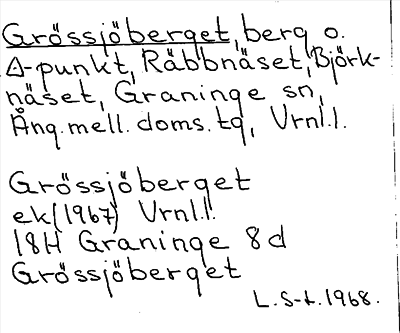 Grössjöberget, berg o.
Δ-punkt, Råbbnäset, Björk-
näset, Graninge sn,
Ång.mell.doms.tg, Vrnl.l.
Grössjöberget
ek(1967) Vrnl.l.
18H Graninge 8d
Grössjöberget
L.S-t.1968.